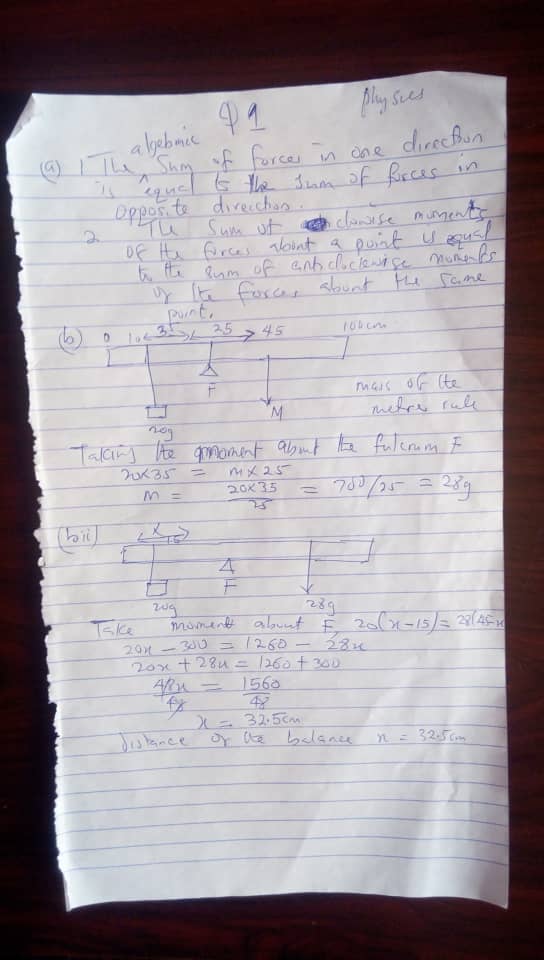 Q1
physics
algebraic
(a) 1 The Sum of forces in one direction
is equal to the sum of forces in
opposite direction.
2. The Sum of clowise moments
of the forces about a point is equal
to the sum of anticlockwise moments
of the forces about the same
point.
(b) 0 10 35 25 45 100cm
F
mass of the
metre rule
20g
M
Taking the moment about the fulcrum F
20x35 = M x 25
M = 20x35/25 = 700/25 = 28g
(bii) x
15
F
20g 28g
Take moment about F, 20(x-15) = 28(45-x
20x - 300 = 1260 - 28x
20x + 28x = 1260 + 300
48x/48 = 1560/48
x = 32.5cm
distance of the balance x = 32.5cm